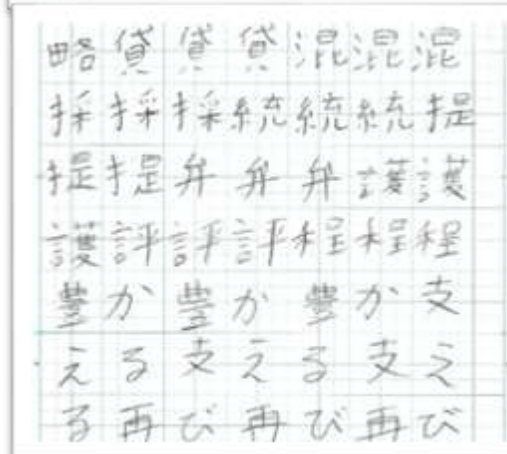 略貸貸貸混混混
採採採統統統提
提提弁弁弁護護
護評評評程程程
豊か豊か豊か支
える支える支え
る再び再び再び